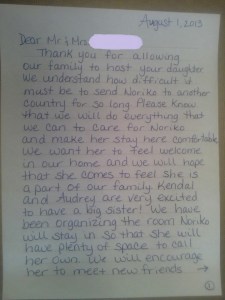 August 1, 2013
Dear Mr & Mrs.
Thank you for allowing
our family to host your daughter
We understand how difficult it
must be to send Noriko to another
country for so long. Please know
that we will do everything that
we can to care for Noriko
and make her stay here comfortable.
We want her to feel welcome
in our home and we will hope
that she comes to feel she is
a part of our family. Kendal
and Audrey are very excited
to have a big sister! We have
been organizing the room Noriko
will stay in so that she will
have plenty of space to call
her own. We will encourage
her to meet new friends →